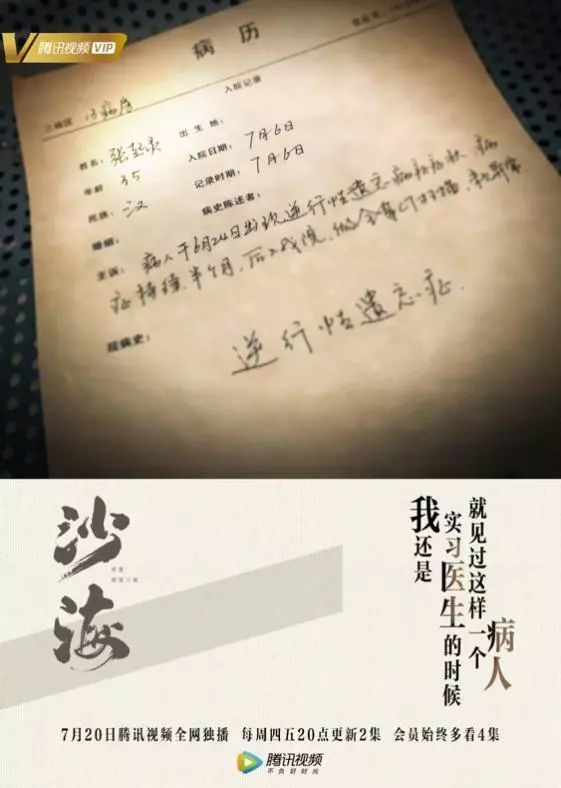 腾讯视频 VIP
病 历
三病区 13病房
入院记录
姓名: 张起灵 出 生 地:
年龄 35 入院日期: 7月6日
民族: 汉 记录时期: 7月6日
婚姻: 病史陈述者:
主诉: 病人于6月24日出现逆行性遗忘病症症状, 病
症持续半个月, 后入我院,
现病史: 逆行性遗忘症.
沙海
我还是
实习医生的时候
就见过这样一个
病人
7月20日腾讯视频全网独播 每周四五20点更新2集 会员始终多看4集
腾讯视频
不负好时光